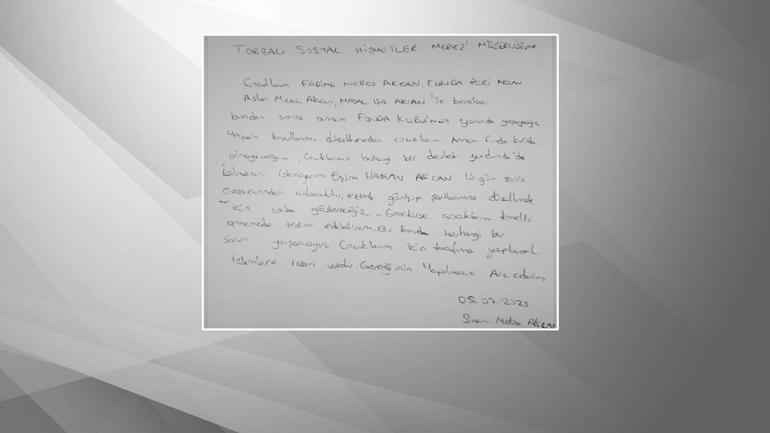 TORBALI SOSYAL HİZMETLER MERKEZİ MÜDÜRLÜĞÜNE
Çocuklarım FADİME NEFES AKCAN, FUNDA PERİ AKCAN
Aslan Miraç Akcan, MASAL IŞIK AKCAN'la beraber
bundan sonra annem FUNDA KURU'nun yanında yaşayacağız
Yaşam koşullarımı düzeltmeden çocuklarımı Annem Funda
olmayacağım, Çocuklarımın herhangi bir devlet yurdunda
kalmasını istemiyorum Eşim HASAN AKCAN 10 gün sonra
Cezaevinden çıkacaktır, eşimle görüşüp şartlarımızı düzeltmek
için çaba göstereceğiz. Gerekirse çocuklarım temelli
anneme teslim edebilirim. Bu konuda herhangi bir
sorun yaşamayız Çocuklarım için tarafıma yapılacak
işlemlere rızam vardır. Gereğinin Yapılmasını Arz ederim
05.07.2023
Sinem Melisa Akcan